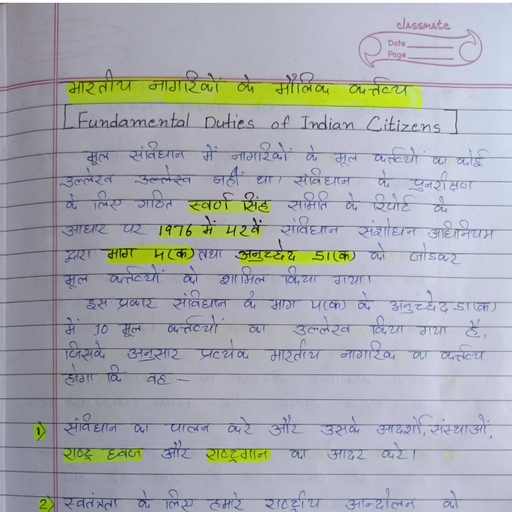 classmate
Date
Page
भारतीय नागरिकों के मौलिक कर्त्तव्य
[Fundamental Duties of Indian Citizens]
मूल संविधान में नागरिकों के मूल कर्त्तव्यों का कोई
उल्लेख उल्लेख नहीं था। संविधान के पुनरीक्षण
के लिए गठित स्वर्ण सिंह समिति के रिपोर्ट के
आधार पर 1976 में 42वें संविधान संशोधन अधिनियम
द्वारा भाग 4(क) तथा अनुच्छेद 51(क) को जोड़कर
मूल कर्त्तव्यों को शामिल किया गया।
इस प्रकार संविधान के भाग 4(क) के अनुच्छेद 51(क)
में 10 मूल कर्त्तव्यों का उल्लेख किया गया है,
जिसके अनुसार प्रत्येक भारतीय नागरिक का कर्त्तव्य
होगा कि वह —
1) संविधान का पालन करे और उसके आदर्शों, संस्थाओं,
राष्ट्र ध्वज और राष्ट्रगान का आदर करे।
2) स्वतंत्रता के लिए हमारे राष्ट्रीय आन्दोलन को